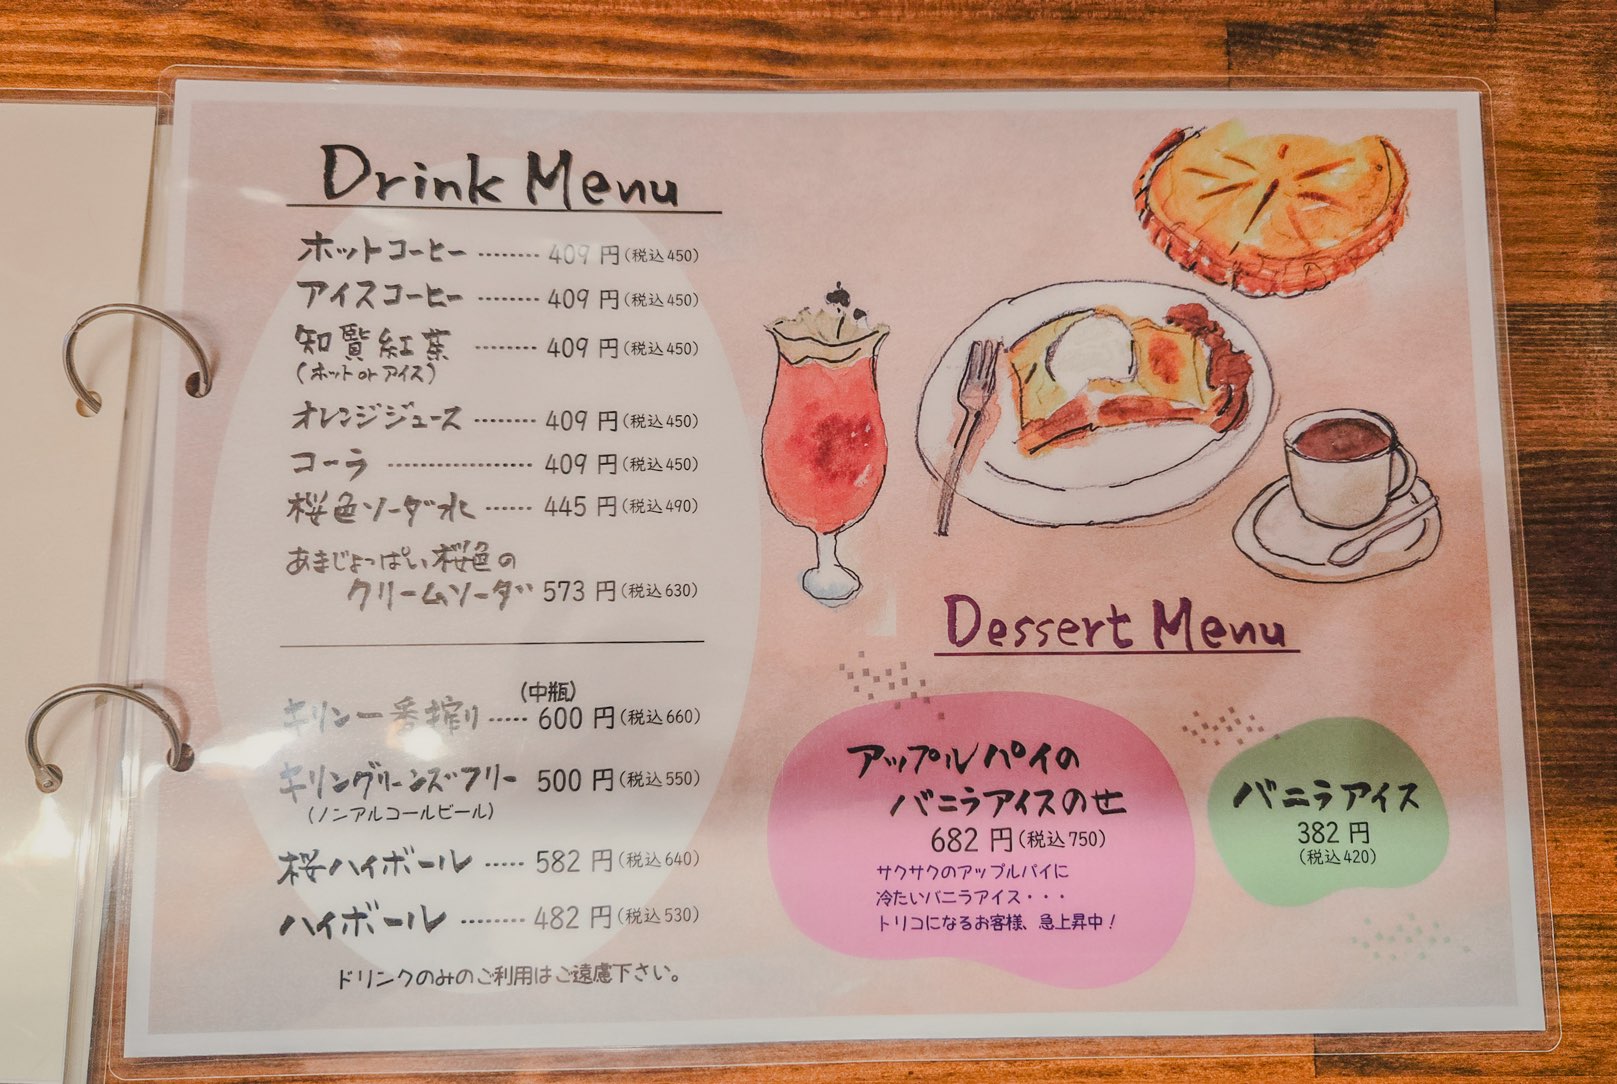 Drink Menu
ホットコーヒー -------- 409 円(税込450)
アイスコーヒー -------- 409 円(税込450)
知覧紅茶 -------- 409 円(税込450)
(ホット or アイス)
オレンジジュース -------- 409 円(税込450)
コーラ ------------------- 409 円(税込450)
桜色ソーダ水 ------ 445 円(税込490)
あまじょっぱい桜色の
クリームソーダ 573 円(税込630)
(中瓶)
キリン一番搾り ----- 600 円(税込660)
キリングリーンズフリー 500 円(税込550)
(ノンアルコールビール)
桜ハイボール ----- 582 円(税込640)
ハイボール -------- 482 円(税込530)
ドリンクのみのご利用はご遠慮下さい。
Dessert Menu
アップルパイの
バニラアイスのせ
682 円(税込750)
サクサクのアップルパイに
冷たいバニラアイス・・・
トリコになるお客様、急上昇中！
バニラアイス
382 円
(税込420)